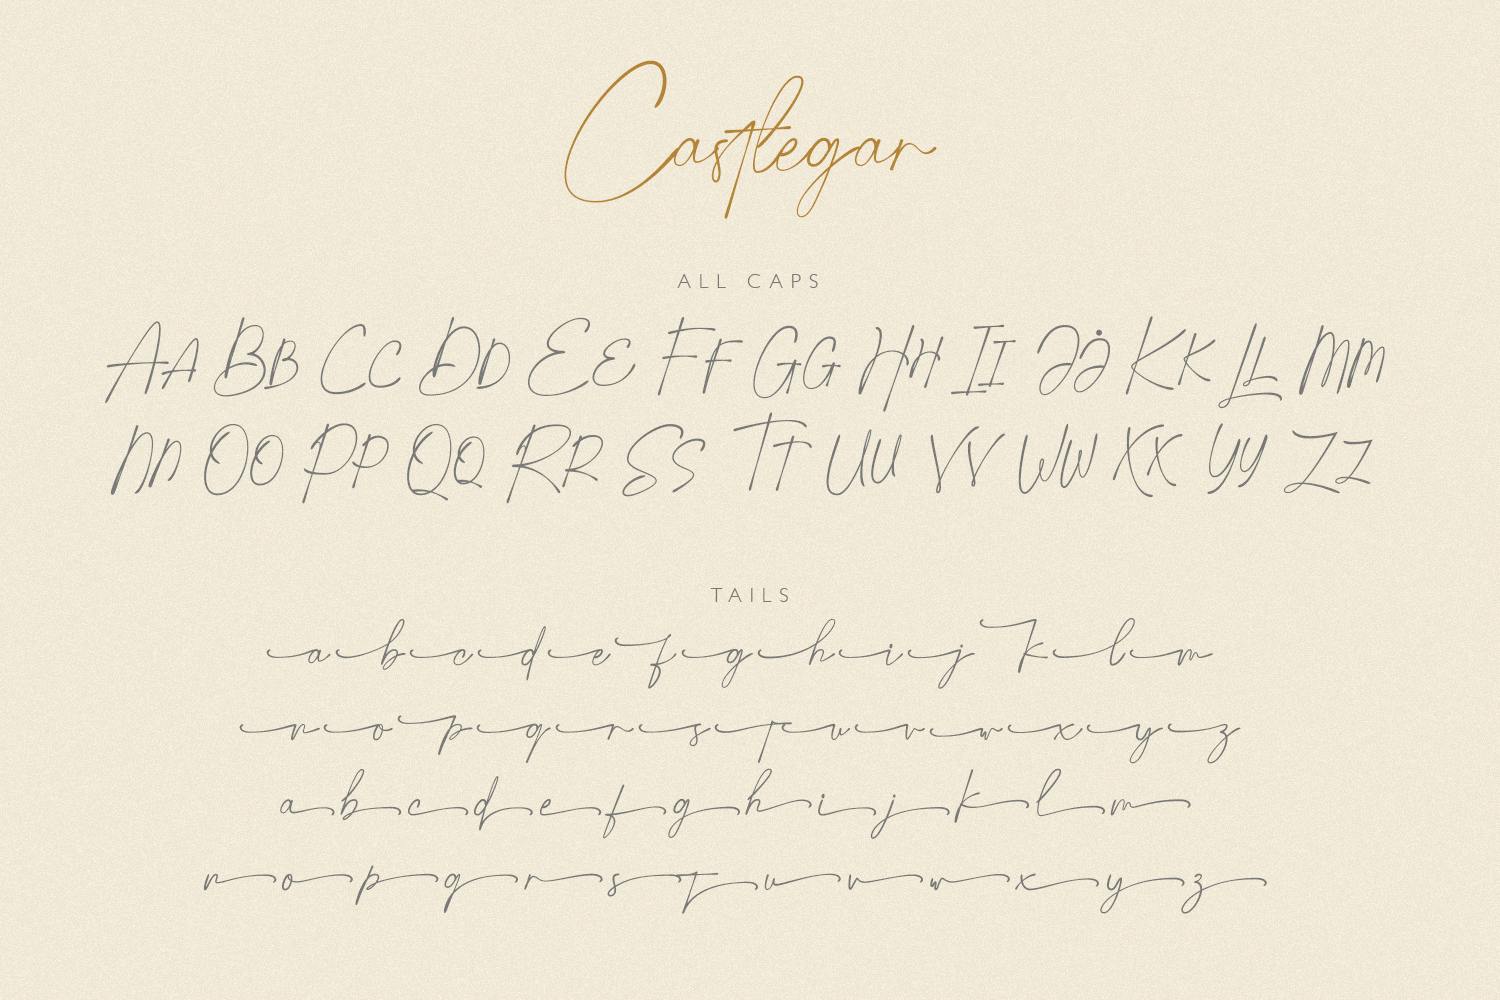 Castlegar
ALL CAPS
AA BB CC DD EE FF GG HH II JJ KK LL MM
NN OO PP QQ RR SS TT UU VV WW XX YY ZZ
TAILS
a b c d e f g h i j k l m
n o p q r s t u v w x y z
a b c d e f g h i j k l m
n o p q r s t u v w x y z